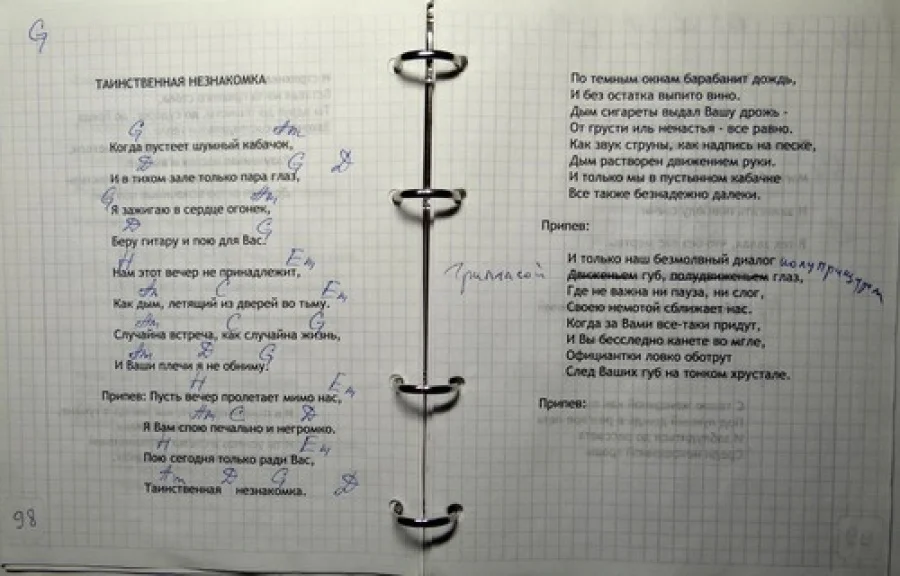 G
ТАИНСТВЕННАЯ НЕЗНАКОМКА
G Am
Когда пустеет шумный кабачок,
D G D
И в тихом зале только пара глаз,
G Am
Я зажигаю в сердце огонек,
D G
Беру гитару и пою для Вас.
H Em
Нам этот вечер не принадлежит,
Am C Em
Как дым, летящий из дверей во тьму.
Am C G
Случайна встреча, как случайна жизнь,
Am D G
И Ваши плечи я не обниму.
H Em
Припев: Пусть вечер пролетает мимо нас,
Am C D
Я Вам спою печально и негромко.
H Em
Пою сегодня только ради Вас,
Am D G D
Таинственная незнакомка.
98
По темным окнам барабанит дождь,
И без остатка выпито вино.
Дым сигареты выдал Вашу дрожь -
От грусти иль ненастья - все равно.
Как звук струны, как надпись на песке,
Дым растворен движением руки.
И только мы в пустынном кабачке
Все также безнадежно далеки.
Припев:
И только наш безмолвный диалог
полуприщуром
Гримасой Движеньем губ, полудвиженьем глаз,
Где не важна ни пауза, ни слог,
Своею немотой сближает нас.
Когда за Вами все-таки придут,
И Вы бесследно канете во мгле,
Официантки ловко оботрут
След Ваших губ на тонком хрустале.
Припев: